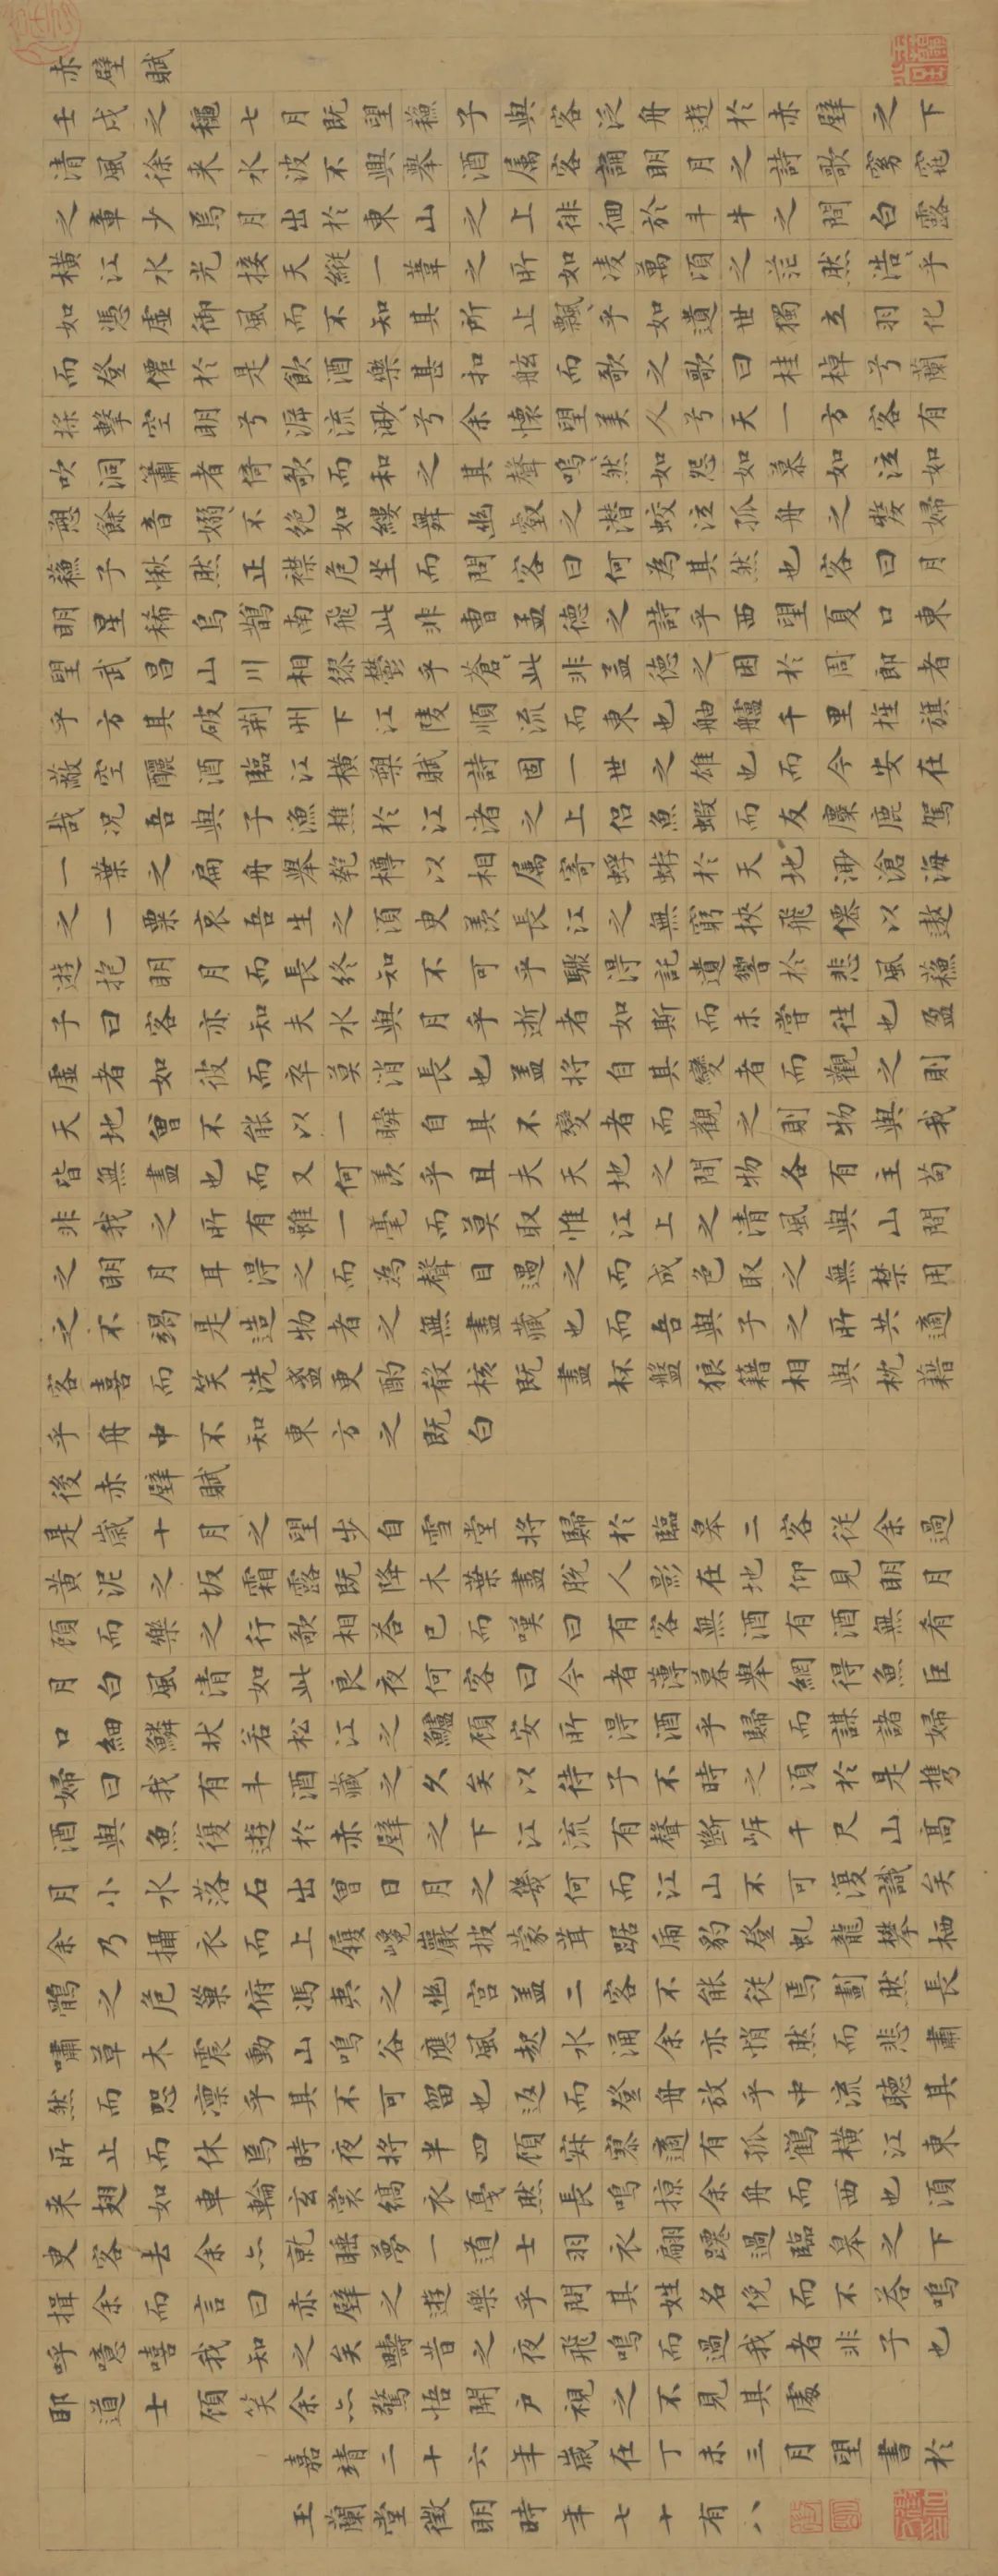 赤壁賦
壬戌之穐七月既望蘓子與客泛舟遊於赤壁之下
清風徐来水波不興舉酒属客誦明月之詩歌窈窕
之章少焉月出於東山之上徘徊於斗牛之間白露
横江水光接天縱一葦之所如凌萬頃之茫然浩〻乎
如憑虚御風而不知其所止飄〻乎如遺世獨立羽化
而登僊於是飲酒樂甚扣舷而歌之歌曰桂棹兮蘭
槳擊空明兮泝流渺〻兮余懷望美人兮天一方客有
吹洞簫者倚歌而和之其聲嗚〻然如怨如慕如泣如
愬餘音嫋〻不絶如縷舞幽壑之潜蛟泣孤舟之嫠婦
蘓子愀然正襟危坐而問客曰何為其然也客曰月
明星稀烏鵲南飛此非曹孟德之詩乎西望夏口東
望武昌山川相繆鬱乎蒼〻此非孟德之困於周郎者
乎方其破荆州下江陵順流而東也舳艫千里旌旗
蔽空釃酒臨江横槊賦詩固一世之雄也而今安在
哉况吾與子漁樵於江渚之上侣魚蝦而友麋鹿駕
一葉之扁舟舉匏樽以相属寄蜉蝣於天地渺滄海
之一粟哀吾生之須臾羡長江之無窮挾飛僊以遨
遊抱明月而長終知不可乎驟得託遺響於悲風蘓
子曰客亦知夫水與月乎逝者如斯而未嘗往也盈
虚者如彼而卒莫消長也盖将自其變者而觀之則
天地曾不能以一瞬自其不變者而觀之則物與我
皆無盡也而又何羡乎且夫天地之間物各有主苟
非我之所有雖一毫而莫取惟江上之清風與山間
之明月耳得之而為聲目遇之而成色取之無禁用
之不竭是造物者之無盡藏也而吾與子之所共適
客喜而笑洗盞更酌肴核既盡杯盤狼籍相與枕藉
乎舟中不知東方之既白
後赤壁賦
是歳十月之望步自雪堂将歸於臨皋二客從余過
黄泥之坂霜露既降木葉盡脱人影在地仰見明月
顧而樂之行歌相答已而嘆曰有客無酒有酒無肴
月白風清如此良夜何客曰今者薄暮舉網得魚巨
口細鱗狀若松江之鱸顧安所得酒乎歸而謀諸婦
婦曰我有斗酒藏之久矣以待子不時之須於是携
酒與魚復遊於赤壁之下江流有聲斷岸千尺山高
月小水落石出曾日月之幾何而江山不可復識矣
余乃攝衣而上履巉巖披蒙茸踞虎豹登虬龍攀栖
鶻之危巢俯馮夷之幽宫盖二客不能從焉劃然長
嘯草木震動山鳴谷應風起水涌余亦悄然而悲肅
然而恐凛乎其不可留也返而登舟放乎中流聽其
所止而休焉時夜将半四顧寂寥適有孤鶴横江東
来翅如車輪玄裳縞衣戛然長鳴掠余舟而西也須
臾客去余亦就睡夢一道士羽衣翩躚過臨皋之下
揖余而言曰赤壁之遊樂乎問其姓名俛而不答嗚
呼噫嘻我知之矣疇昔之夜飛鳴而過我者非子也
耶道士顧笑余亦驚悟開户視之不見其處
嘉靖二十六年歳在丁未三月望書於
玉蘭堂徴明時年七十有八